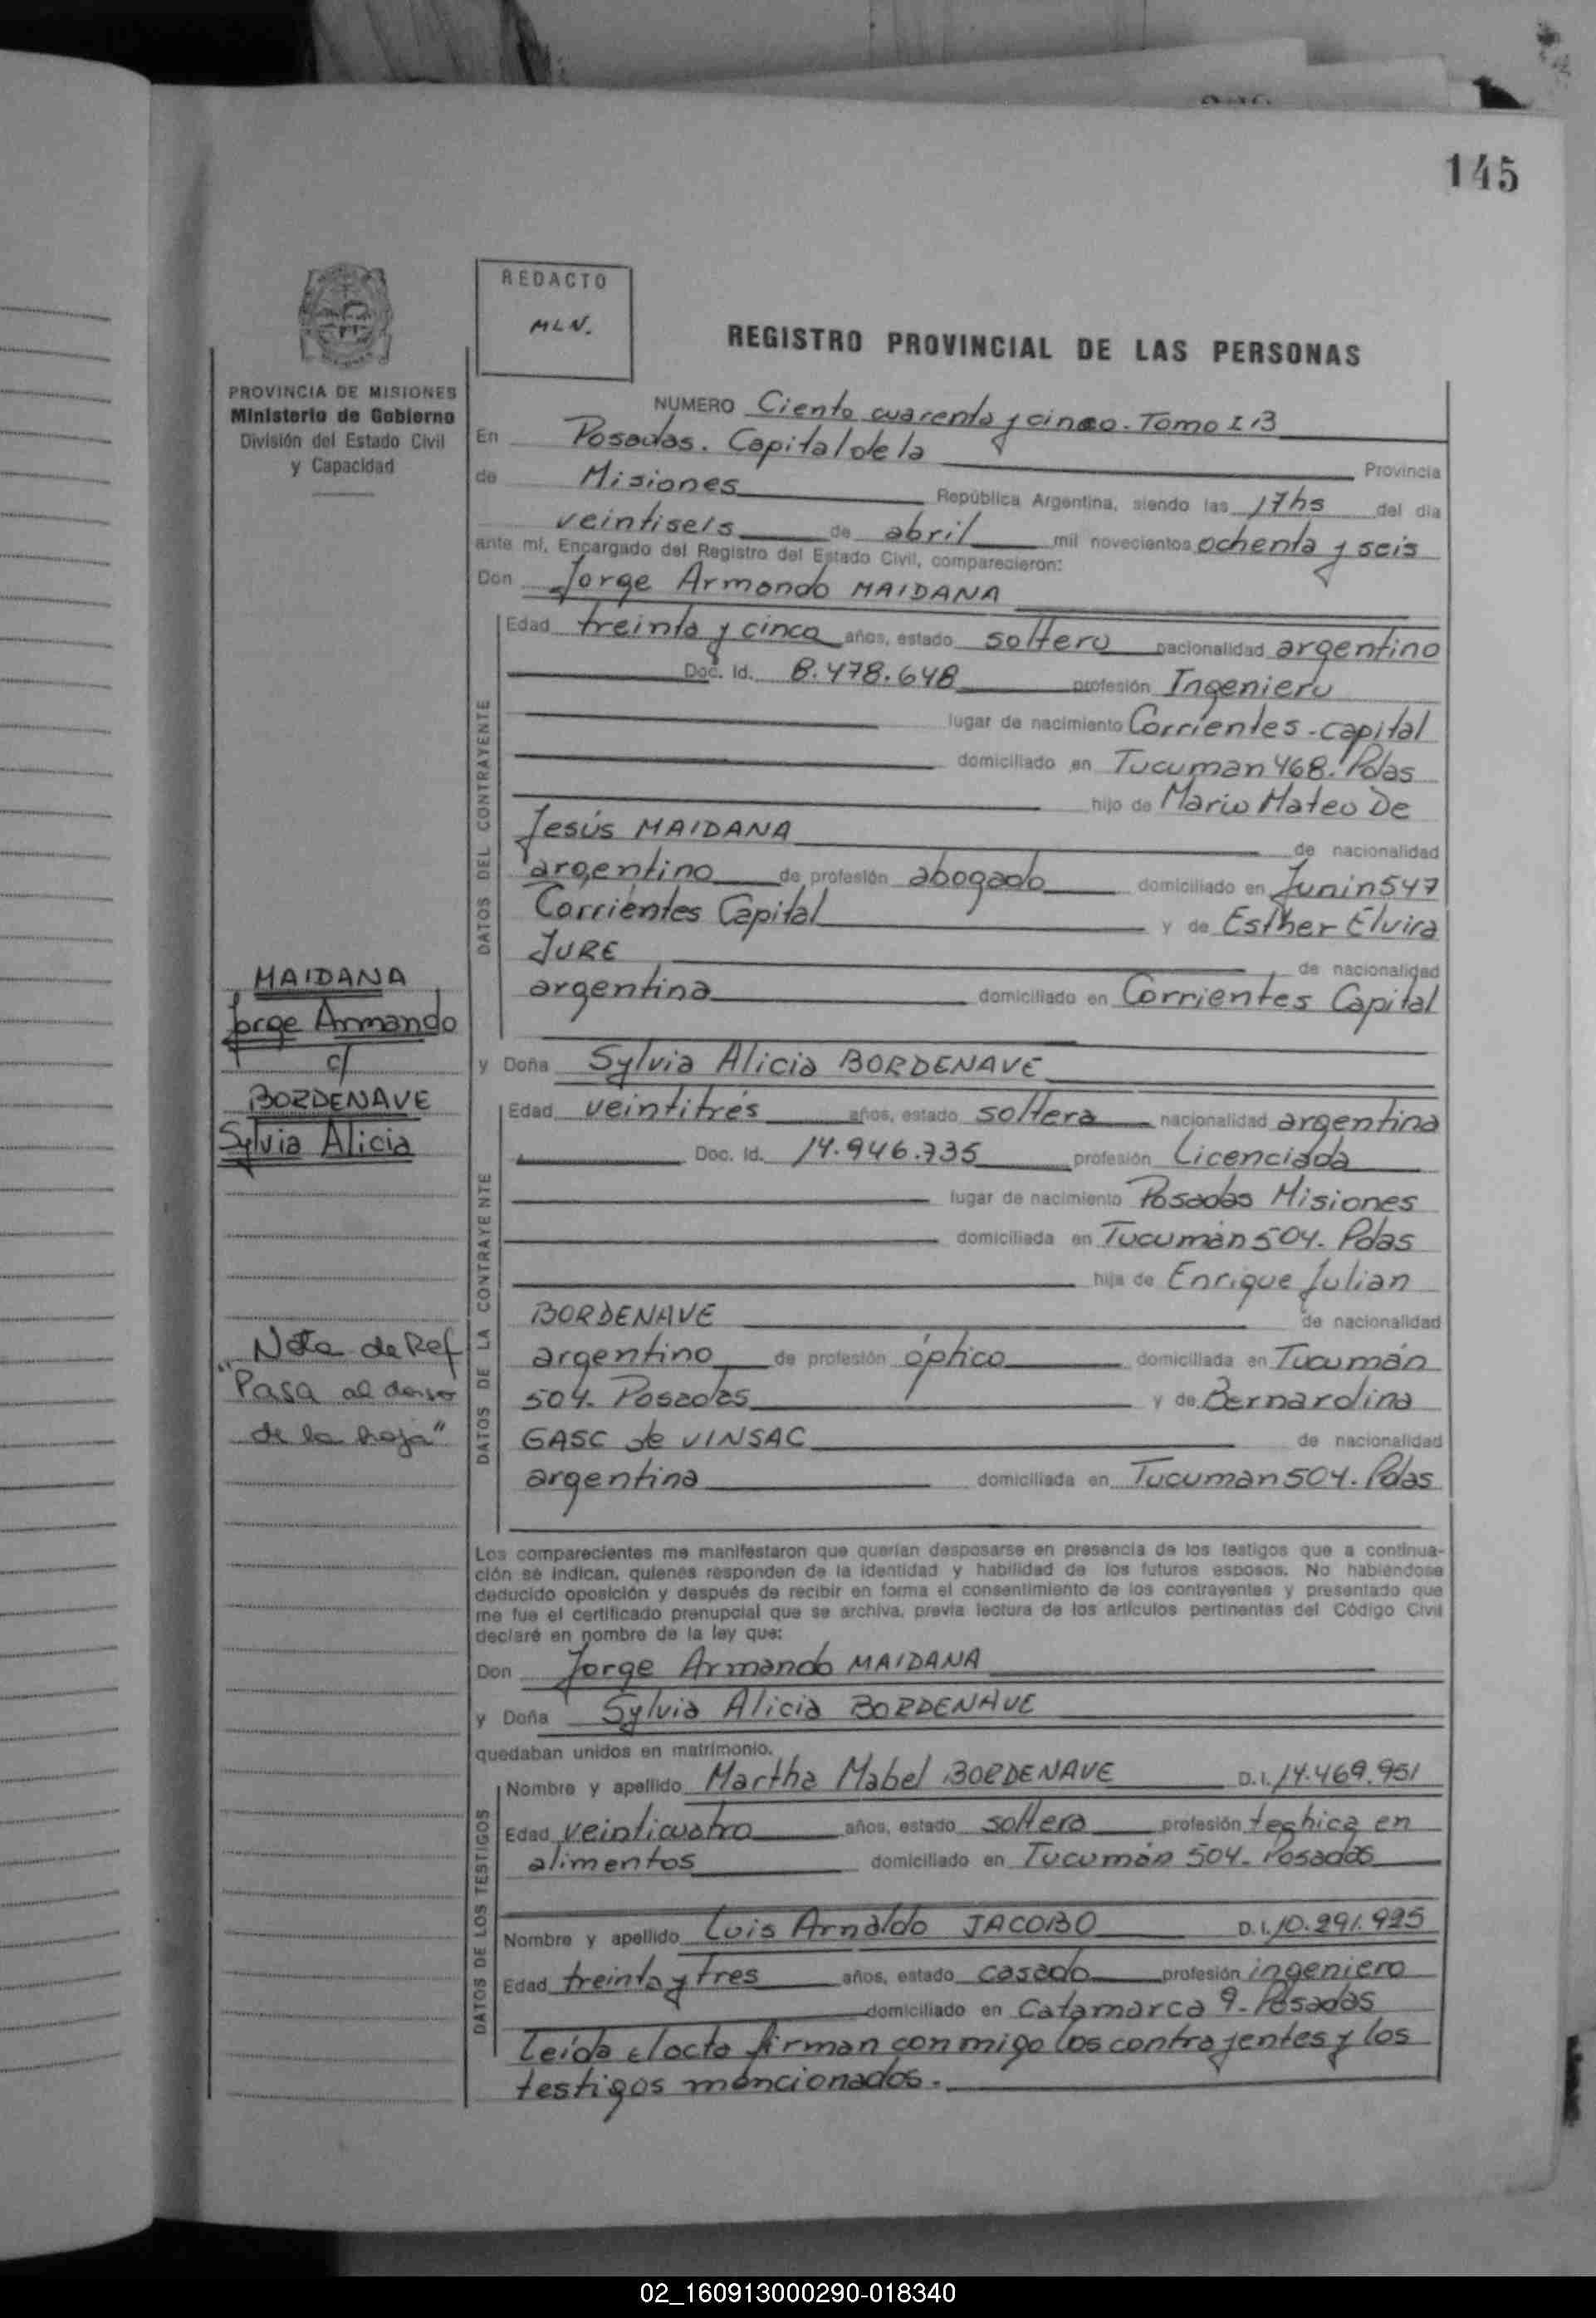 145
REDACTO
MLN.
REGISTRO PROVINCIAL DE LAS PERSONAS
PROVINCIA DE MISIONES
Ministerio de Gobierno
División del Estado Civil
y Capacidad
NUMERO Ciento cuarenta y cinco. Tomo I 13
En Posadas. Capital de la Provincia
de Misiones República Argentina, siendo las 17hs del día
veintiseis de abril mil novecientos ochenta y seis
ante mí, Encargado del Registro del Estado Civil, comparecieron:
Don Jorge Armando MAIDANA
DATOS DEL CONTRAYENTE
Edad treinta y cinco años, estado soltero nacionalidad argentino
Doc. Id. 8.478.648 profesión Ingeniero
lugar de nacimiento Corrientes-capital
domiciliado en Tucuman 468. Pdas
hijo de Mario Mateo De
Jesús MAIDANA de nacionalidad
argentino de profesión abogado domiciliado en Junin 547
Corrientes Capital y de Esther Elvira
JURE de nacionalidad
argentina domiciliado en Corrientes Capital
MAIDANA
Jorge Armando
c/
BORDENAVE
Sylvia Alicia
y Doña Sylvia Alicia BORDENAVE
DATOS DE LA CONTRAYENTE
Edad veintitrés años, estado soltera nacionalidad argentina
Doc. Id. 14.946.735 profesión Licenciada
lugar de nacimiento Posadas Misiones
domiciliada en Tucumán 504. Pdas
hija de Enrique Julian
BORDENAVE de nacionalidad
argentino de profesión óptico domiciliada en Tucumán
504. Posadas y de Bernardina
GASC de VINSAC de nacionalidad
argentina domiciliada en Tucuman 504. Pdas
Nota de Ref
"Pasa al dorso
de la hoja"
Los comparecientes me manifestaron que querían desposarse en presencia de los testigos que a continua-
ción se indican, quienes responden de la identidad y habilidad de los futuros esposos. No habiéndose
deducido oposición y después de recibir en forma el consentimiento de los contrayentes y presentado que
me fue el certificado prenupcial que se archiva, previa lectura de los artículos pertinentes del Código Civil
declaré en nombre de la ley que:
Don Jorge Armando MAIDANA
y Doña Sylvia Alicia BORDENAVE
quedaban unidos en matrimonio.
DATOS DE LOS TESTIGOS
Nombre y apellido Martha Mabel BORDENAVE D.I. 14.469.951
Edad veinticuatro años, estado soltera profesión tecnica en
alimentos domiciliado en Tucumán 504. Posadas
Nombre y apellido Luis Arnaldo JACOBO D.I. 10.291.925
Edad treinta y tres años, estado casado profesión ingeniero
domiciliado en Catamarca 9. Posadas
Leída el acta firman conmigo los contrayentes y los
testigos mencionados.
02_160913000290-018340